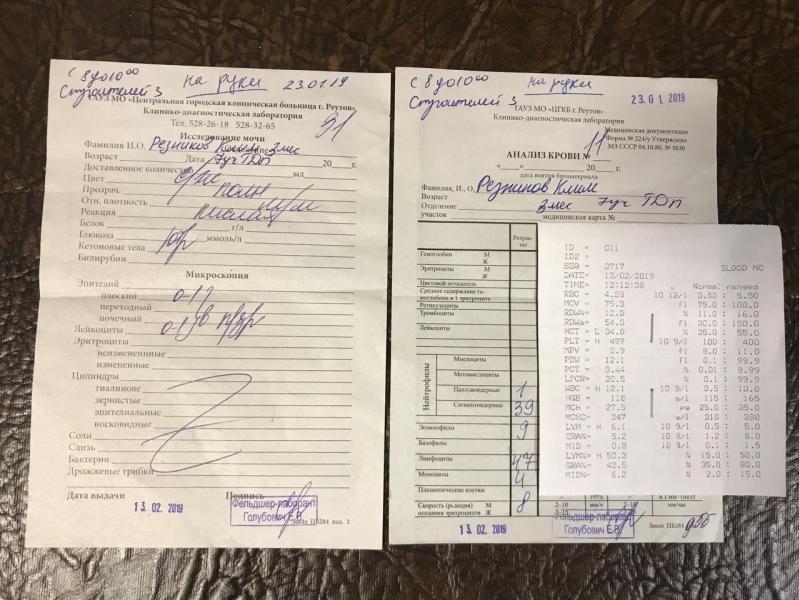 с 8 до 10 00
на руки 23.01.19
Строителей 3
ГАУЗ МО «Центральная городская клиническая больница г. Реутов»
Клинико-диагностическая лаборатория
Тел. 528-26-18 528-32-65
Исследование мочи
Фамилия И.О. Резников Клим 3 мес
Возраст Дата 7 уч ТДП 20 г.
Доставленное количество мл
Цвет с/ж
Прозрач. полн
Отн. плотность м/м
Реакция кислая
Белок г/л
Глюкоза ммоль/л
Кетоновые тела
Билирубин
Микроскопия
Эпителий
плоский 0-1
переходный
почечный
Лейкоциты 0-1 в п/зр
Эритроциты
неизмененные
измененные
Цилиндры
гиалиновые
зернистые
эпителиальные
восковидные
Соли
Слизь
Бактерии
Дрожжевые грибки
Дата выдачи Подпись
13.02.2019
Фельдшер-лаборант
Голубович Е.В.
ПБ284 воз. 2
с 8 до 10 00
на руки
23.01.2019
Строителей 3
ГАУЗ МО «ЦГКБ г. Реутов»
Клинико-диагностическая лаборатория
Медицинская документация
Форма № 224/у Утверждено
МЗ СССР 04.10.80. № 1030
АНАЛИЗ КРОВИ № 11
« » 20 г.
дата взятия биоматериала
Фамилия, И., О. Резников Клим
Возраст 3 мес 7 уч ТДП
Отделение
участок медицинская карта №
Результат
Гемоглобин М
Ж
Эритроциты М
Ж
Цветовой показатель
Среднее содержание гемоглобина в 1 эритроците
Ретикулоциты
Тромбоциты
Лейкоциты
Нейтрофилы
Миелоциты
Метамиелоциты
Палочкоядерные 1
Сегментоядерные 39
Эозинофилы 9
Базофилы
Лимфоциты 47
Моноциты 4
Плазматические клетки
Скорость (реакция) оседания эритроцитов М 8
Ж
2–10
2–15
мм/час
13.02.2019
Фельдшер-лаборант
Голубович Е.В.
Заказ ПБ284
ID = 011
ID2 =
SEQ = 3717 BLOOD MC
DATE= 13/02/2019
TIME= 12:12:38 Normal ranges
RBC = 4.28 10 12/l 3.50 : 5.50
MCV = 79.3 fl 75.0 : 100.0
RDW%= 12.0 % 11.0 : 16.0
RDWa= 54.0 fl 30.0 : 150.0
HCT = L 34.0 % 35.0 : 55.0
PLT = H 497 10 9/l 100 : 400
MPV = 8.9 fl 8.0 : 11.0
PDW = 12.1 fl 0.1 : 99.9
PCT = 0.44 % 0.01 : 9.99
LPCR= 20.5 % 0.1 : 99.9
WBC = H 12.1 10 9/l 3.5 : 10.0
HGB = 118 g/l 115 : 165
MCH = 27.5 pg 25.0 : 35.0
MCHC= 347 g/l 310 : 380
LYM = H 6.1 10 9/l 0.5 : 5.0
GRAN= 5.2 10 9/l 1.2 : 8.0
MID = 0.8 10 9/l 0.1 : 1.5
LYM%= H 50.3 % 15.0 : 50.0
GRA%= 43.5 % 35.0 : 80.0
MID%= 6.2 % 2.0 : 15.0